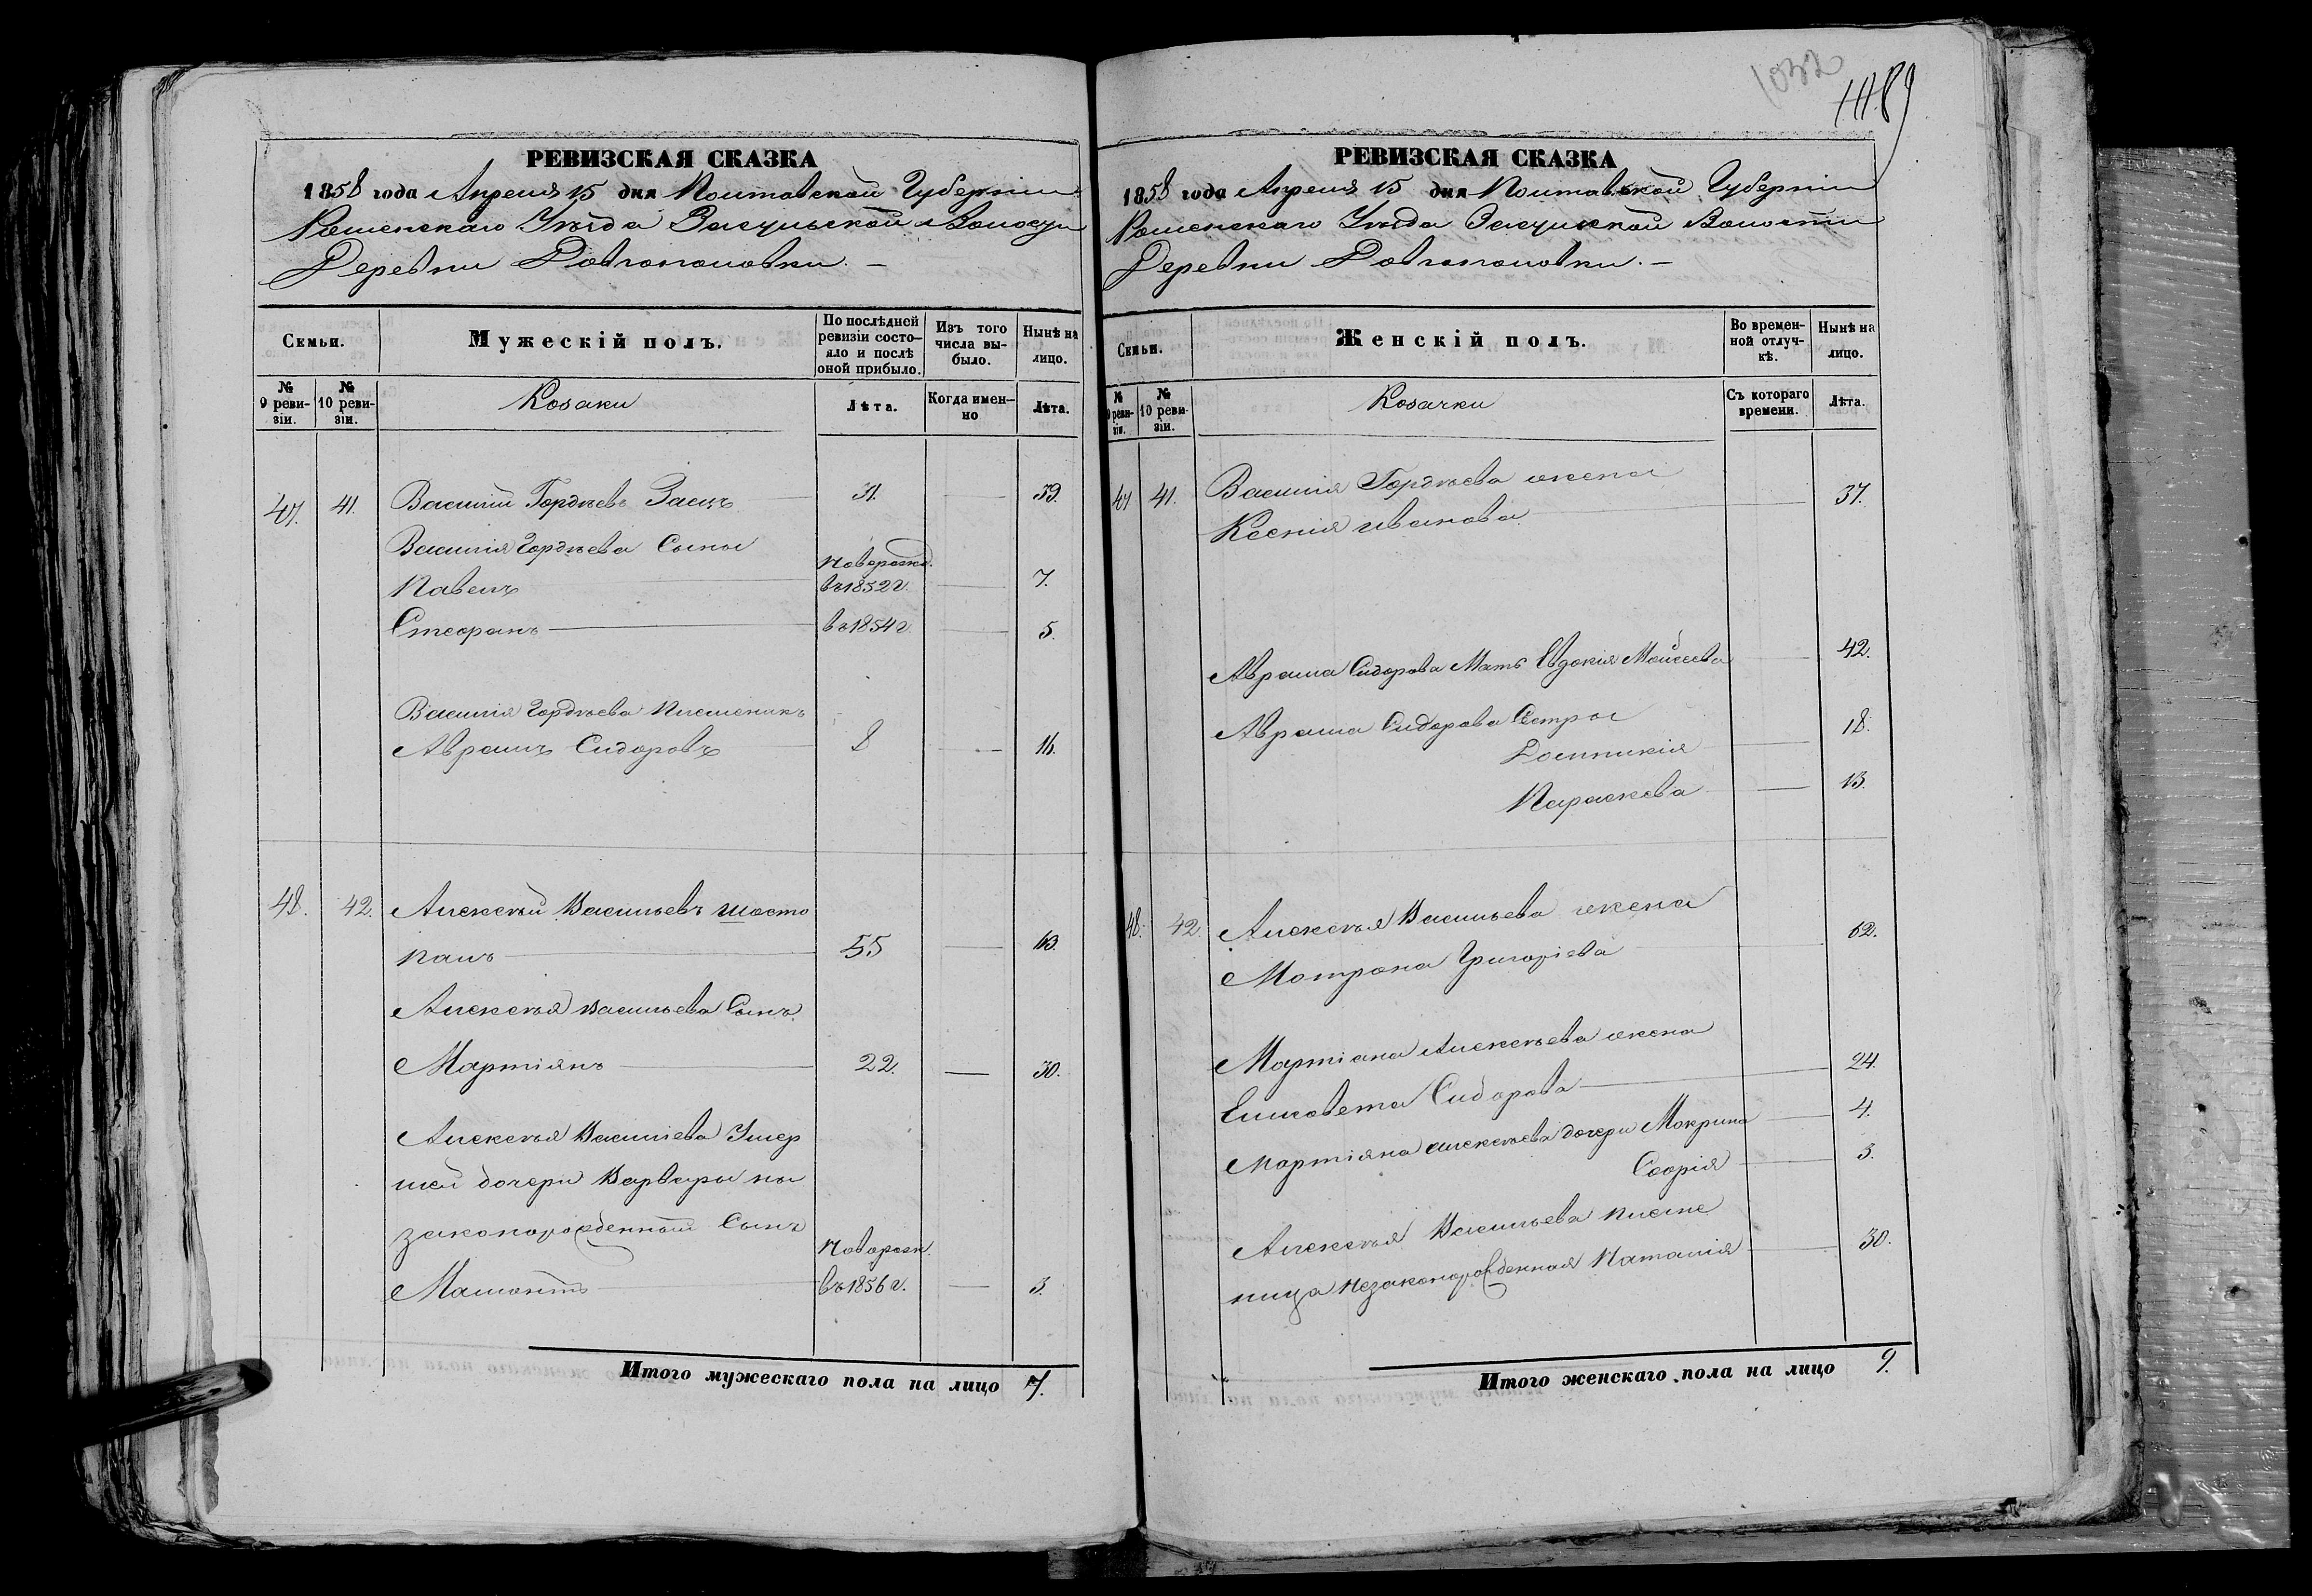 1032
РЕВИЗСКАЯ СКАЗКА
1858 года Апреля 15 дня Полтавской Губерніи
Роменскаго Уѣзда Засульской Волости
Деревни Довгополовки. —
Семьи.
Мужескій полъ.
По послѣдней ревизіи состояло и послѣ оной прибыло.
Изъ того числа выбыло.
Нынѣ на лицо.
№ 9 ревизіи.
№ 10 ревизіи.
Козаки
Лѣта.
Когда именно
Лѣта.
47. 41. Василій Гордѣевъ Заецъ 31. 39.
Василія Гордѣева Сыны
Новорожд.
Павелъ въ 1852 г. 7.
Стефанъ въ 1854 г. 5.
Василія Гордѣева Племеникъ
Аврамъ Сидоровъ 8 16.
48. 42. Алексѣй Васильевъ Шосто
палъ 55 63.
Алексѣя Васильева Сынъ
Мартіянъ 22. 30.
Алексѣя Василіева Умер
шей дочери Варвары
законорожденный Сынъ
Новорож.
въ 1856 г. 3.
Итого мужескаго пола на лицо 7.
РЕВИЗСКАЯ СКАЗКА
1858 года Апреля 15 дня Полтавской Губерніи
Роменскаго Уѣзда Засульской Волости
Деревни Довгополовки. —
Семьи.
Женскій полъ.
Во временной отлучкѣ.
Нынѣ на лицо.
№ 9 ревизіи.
№ 10 ревизіи.
Козачки
Съ котораго времени.
Лѣта.
47 41. Василія Гордѣева жена
Ксенія Иванова 37.
Аврама Сидорова Мать Евдокія Мойсеева 42.
Аврама Сидорова Сестры
Домникія 18.
Параскева 13.
48. 42. Алексѣя Васильева жена
Мотрона Григоріева 62.
Мартіана Алексѣева жена
Елисовета Сидорова 24.
Мартіяна Алексѣева дочери Мокрина 4.
Софія 3.
Алексѣя Васильева племе
ница незаконорожденная Наталія 30.
Итого женскаго пола на лицо 9.